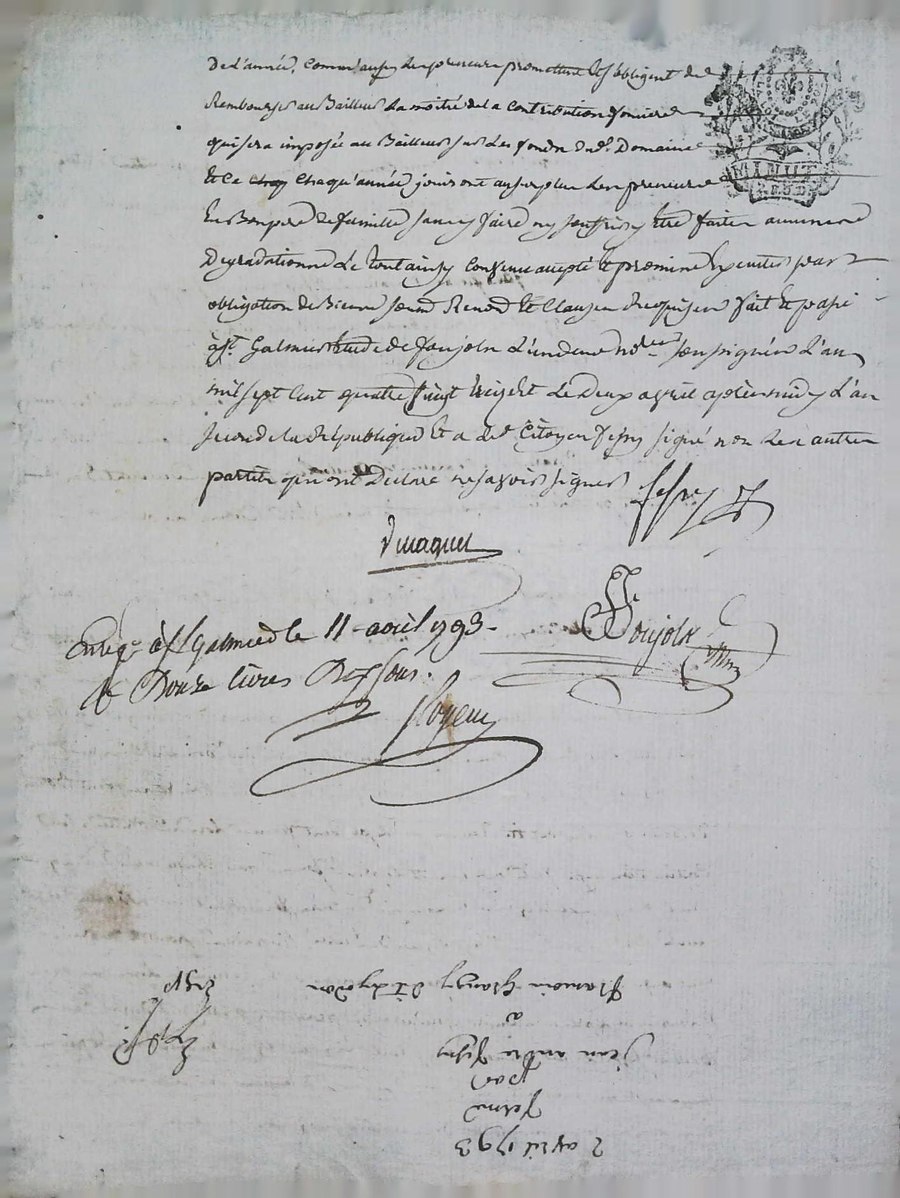 De l'année, Comm'aussy les preneurs promettent et s'obligent de
Rembourser au Bailleur la moitié de la Contribution fonciere
qui sera imposée au Bailleur sur les fonds dud. Domaine
et ce chaq chaqu'année, jouiront au surplus les preneurs
En Bon pere de famille sans y faire ny souffrir y être faites aucunes
Degradations Le tout ainsy convenu accepté et promis Executer par
obligation de Biens soum. Renon. et Clauses Requises fait et passé
à St. Galmier Etude de Soujols L'un des nores soussignés L'an
mil sept cent quatre vingt treize et Le deux avril après midy L'an
second de la République Et a led. Citoyen signé non Les autres
parties qui ont Déclaré ne savoir signer
MINUT
Soujols
Enreg. à St Galmier le 11 avril 1793.
R Douze livres Dix sous.
2 avril 1793
ferme
par
jean andré
a
françois